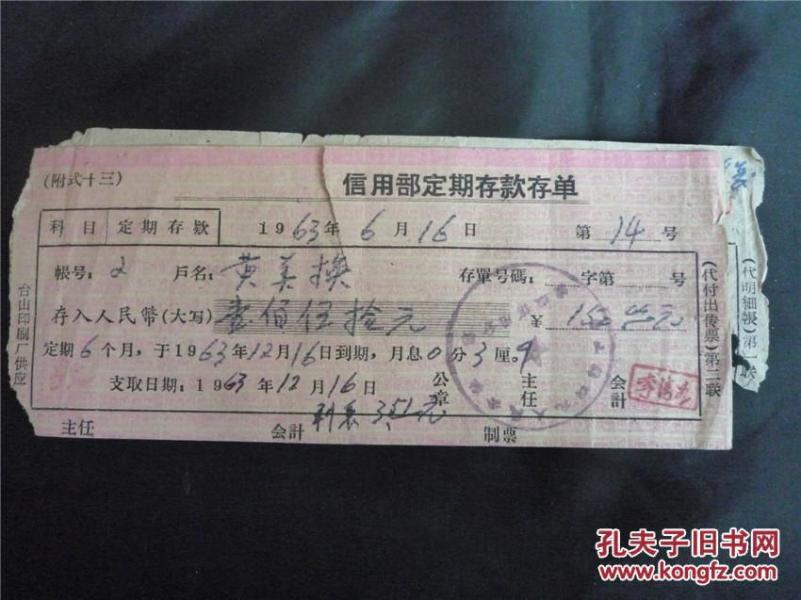 (附式十三)
信用部定期存款存单
科目 定期存款 1963年6月16日 第14号
帳号：2 戶名：黄美换 存單号碼： 字第 号
存入人民幣(大写)壹佰伍拾元 ¥150.00元
定期6个月，于1963年12月16日到期，月息0分3厘9
支取日期：1963年12月16日 公章 主任 会計
利息3.51元
主任 会計 制票
台山印刷厂供应
(代付出传票)第二联
(代明細帳)第一联
孔夫子旧书网
www.kongfz.com